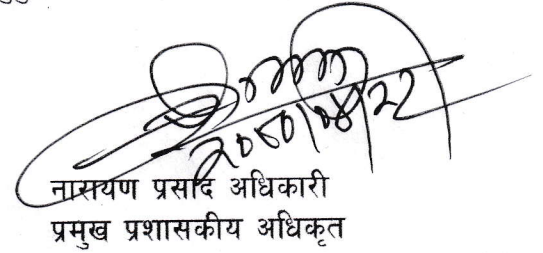 २०८०।०४।२२
नारायण प्रसाद अधिकारी
प्रमुख प्रशासकीय अधिकृत